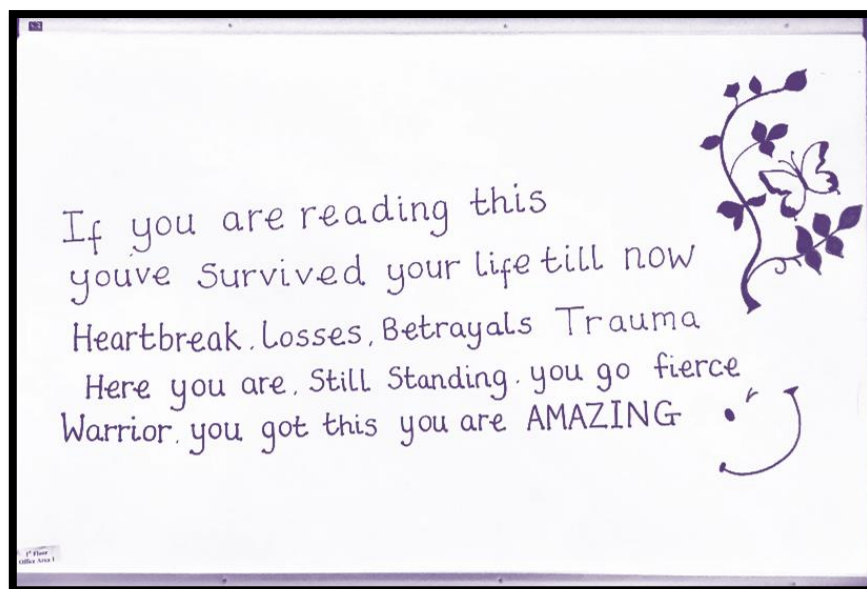 If you are reading this
youve Survived your life till now
Heartbreak, Losses, Betrayals Trauma
Here you are, Still Standing. you go fierce
Warrior, you got this you are AMAZING
1st Floor
Office Area 1